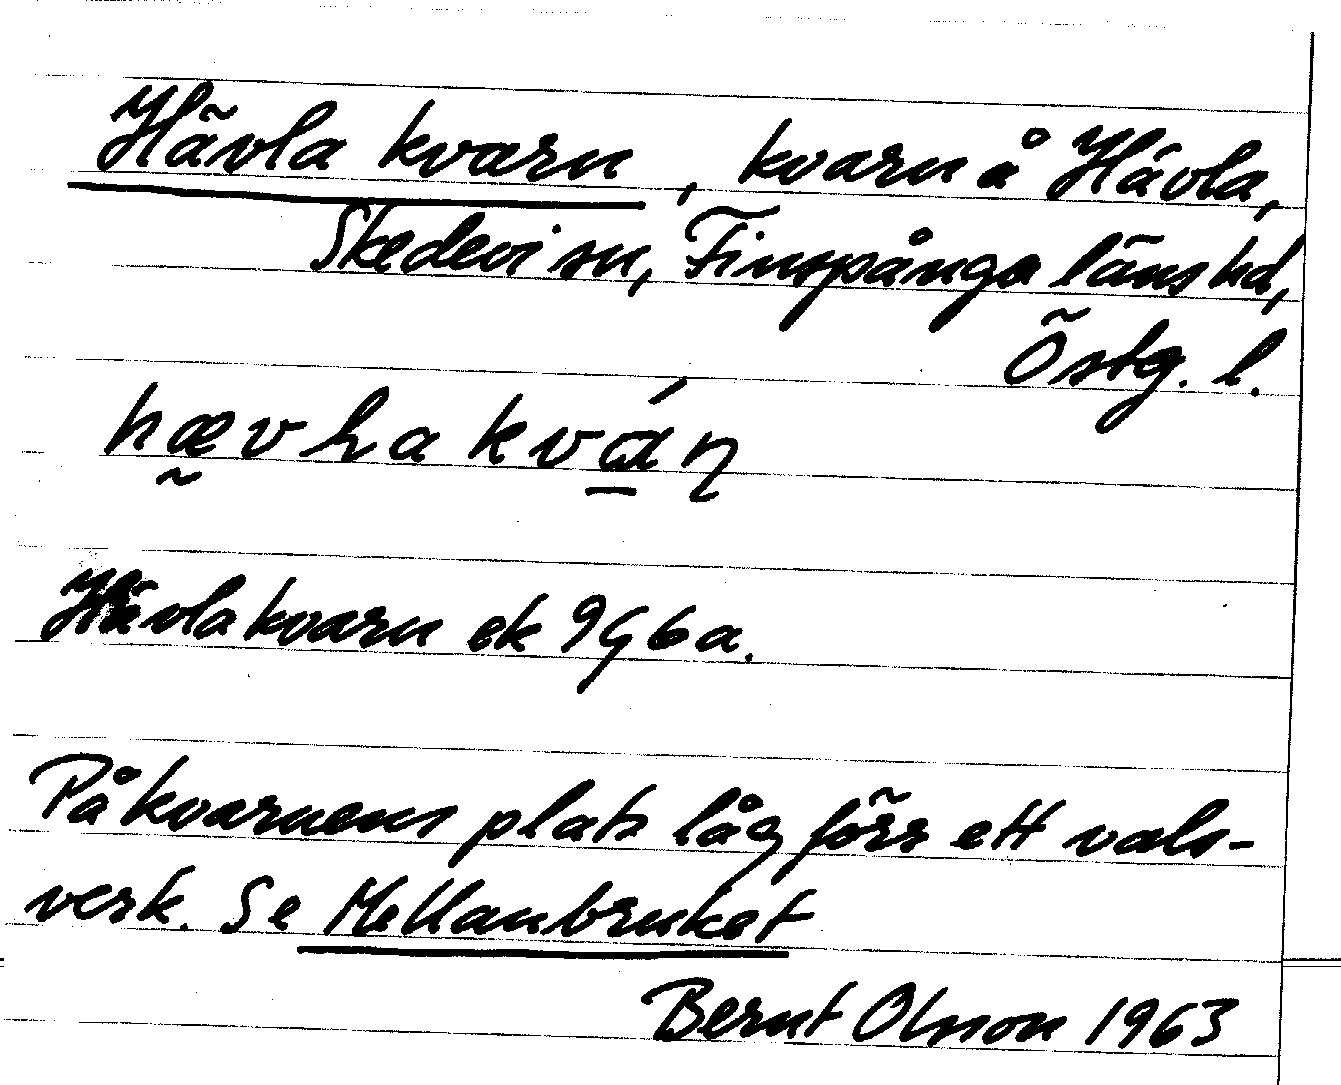 Hävla kvarn, kvarn å Hävla,
Skedevi sn, Finspånga läns hd,
Östg. l.
Hävla kvarn ek 9G6a.
På kvarnens plats låg förr ett vals-
verk. Se Mellanbruket
Bernt Olsson 1963